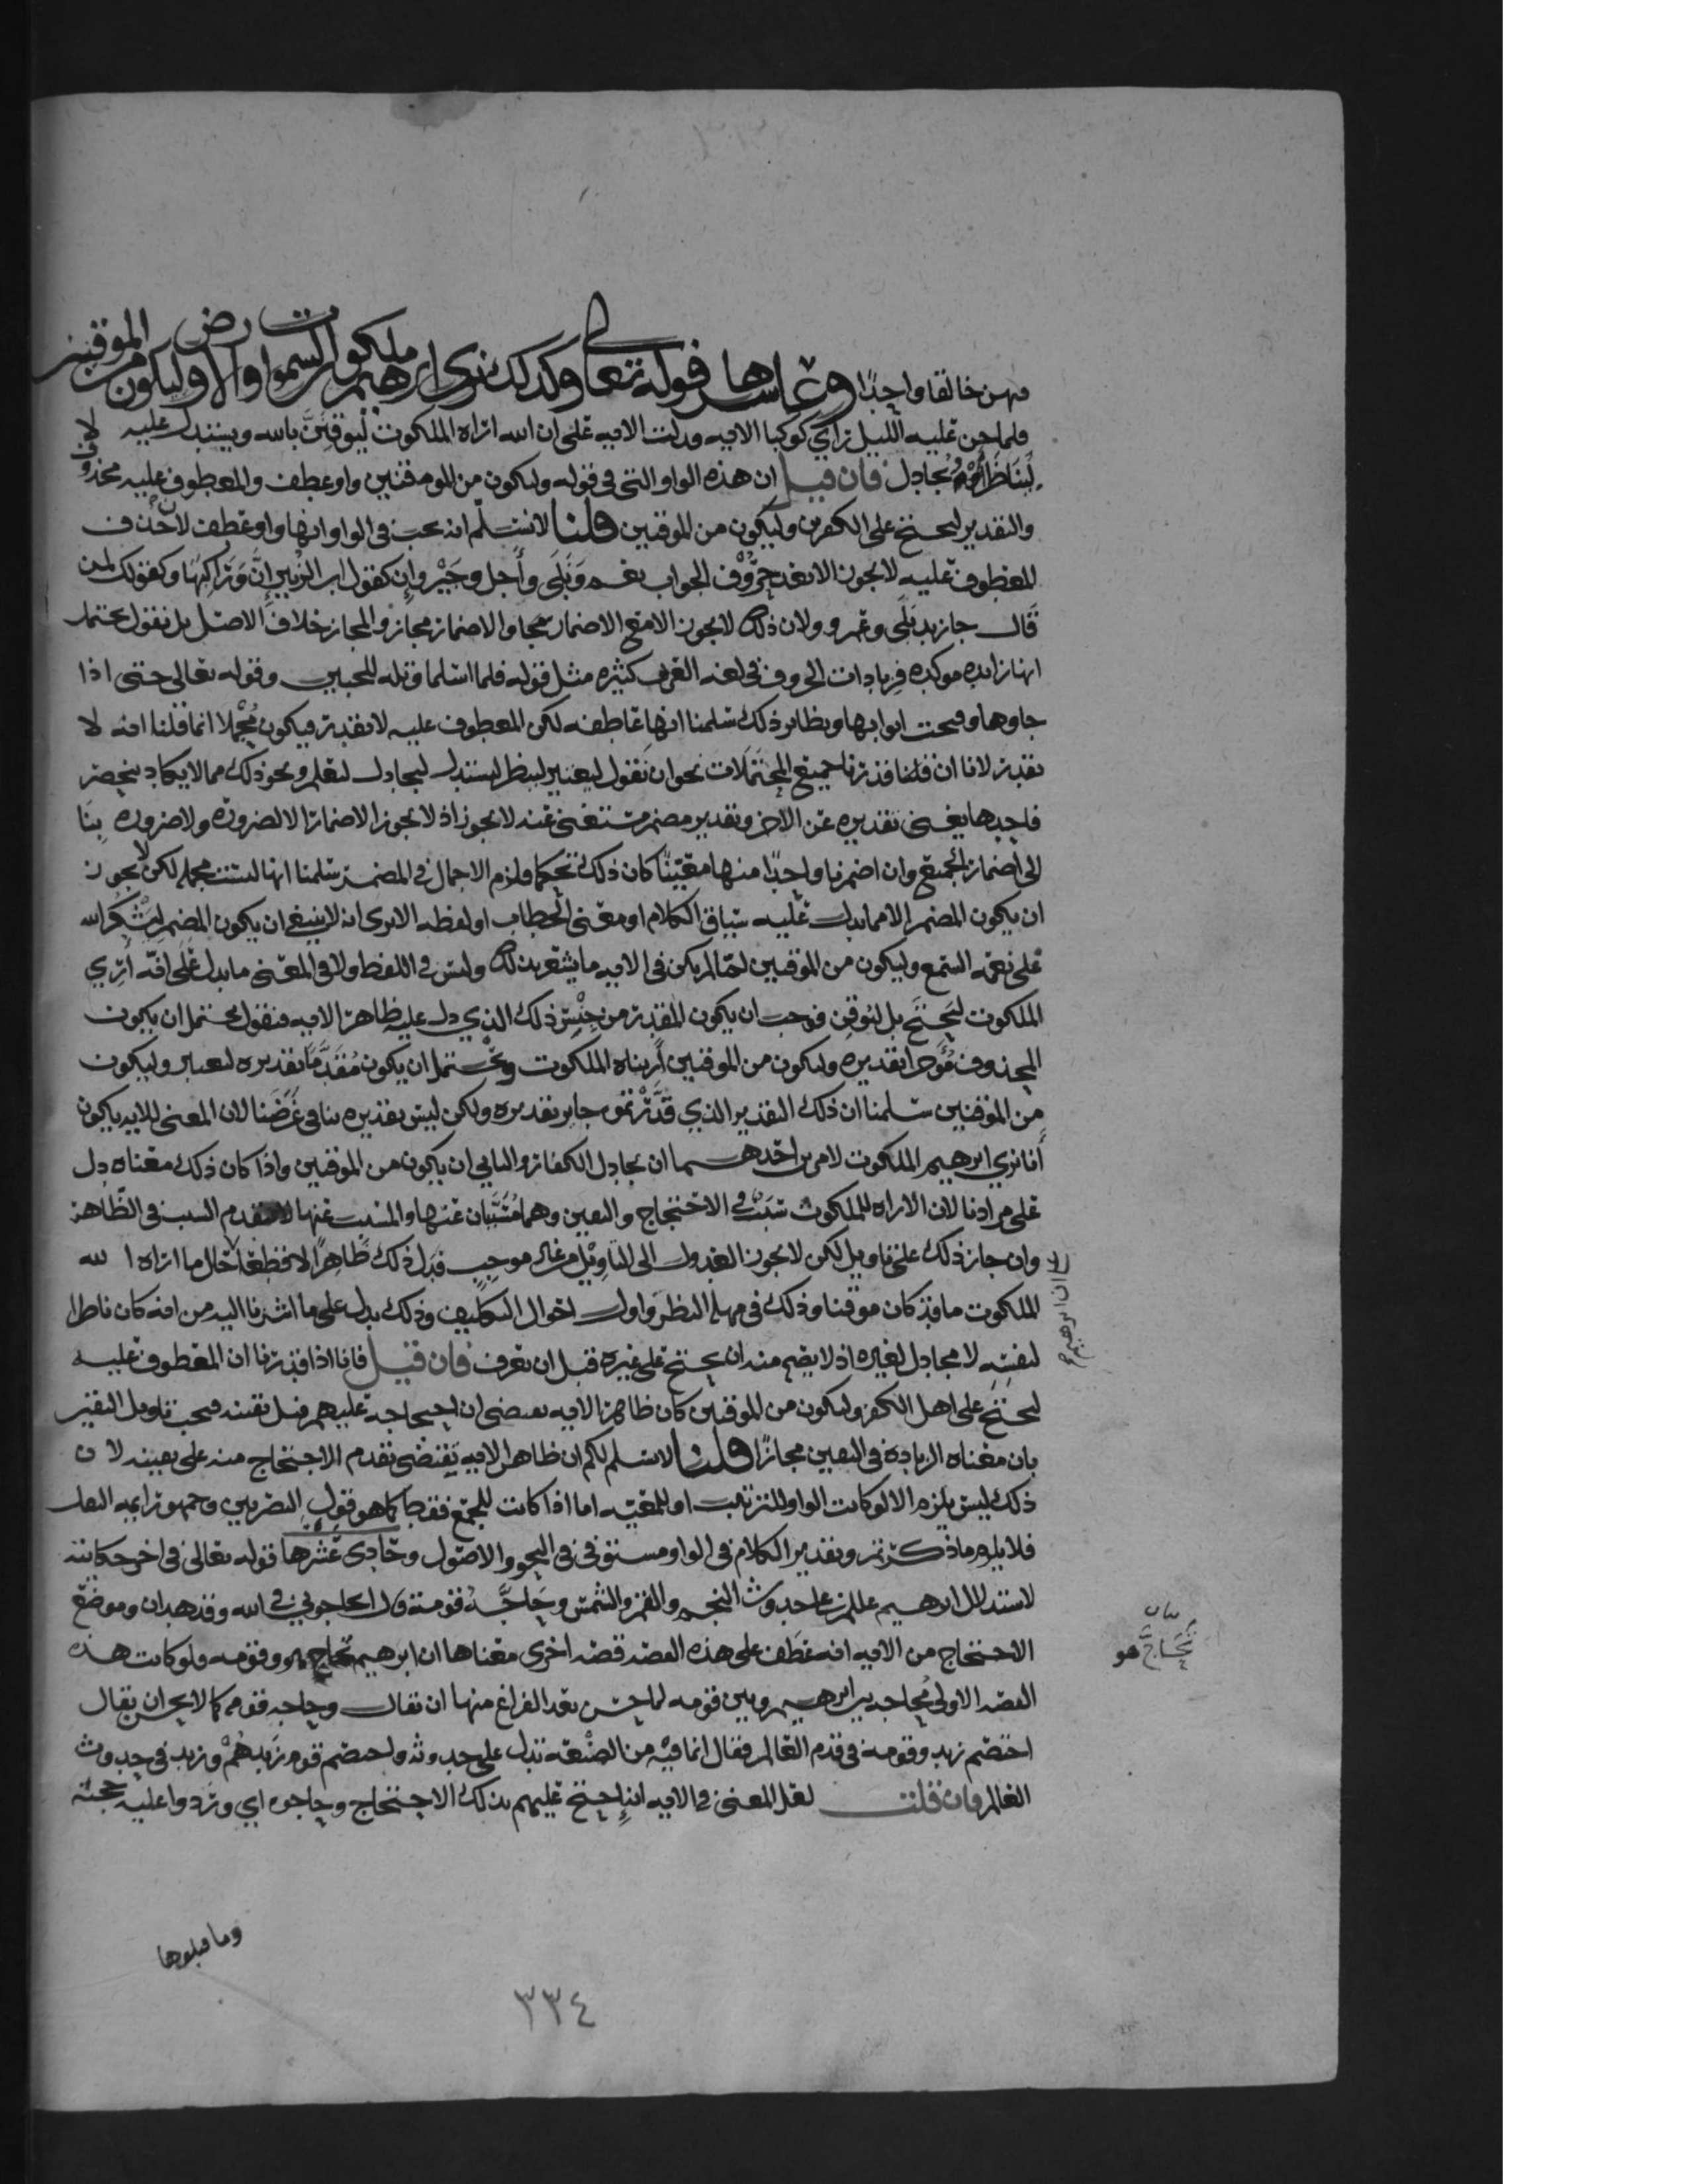 فهن خالقا واحدًا وعاشرها قوله تعالى وكذلك نري ابرهيم ملكوت السموات والارض وليكون من الموقنين
فلما جن عليه الليل رأي كوكبا الايه ودلت الايه على ان الله اراه الملكوت ليوقنن بالله ويستدل عليه لا
ليناظر قومه ويجادل فان قيل ان هذه الواو التي في قوله وليكون من الموقنين واو عطف والمعطوف عليه محذوف
والتقدير ليحتج على الكفرين وليكون من الموقنين قلنا لا نسلم انه يجب في الواو انها واو عطف لان حذف
المعطوف عليه لا يجوز الا بعد حروف الجواب نعم وبلى وأجل وجير وإن كقول ابن الزبير إنَّ وراكبها وكقولك لمن
قال جا زيد بلى وعمرو ولان ذلك لا يجوز الا مع الاضمار والاضمار مجاز والمجاز خلاف الاصل بل نقول يحتمل
انها زايده موكده فزيادات الحروف في لغه العرب كثيره مثل قوله فلما اسلما وتله للجبين وقوله تعالى حتى اذا
جاوها وفتحت ابوابها ونظاير ذلك سلمنا انها عاطفه لكن المعطوف عليه لا نقدره فيكون مجملا انما قلنا انه لا
نقدره لانا ان قلنا قدرنا جميع المحتملات نحو ان نقول ليعتبر لينظر ليستدل ليجادل ليعلم ونحو ذلك مما لا يكاد ينحصر
فاحدها يغني تقديره عن الاخر وتقدير مضمر مستغنى عنه لا يجوز اذ لا يجوز الاضمار الا لضروره ولا ضروره بنا
الى اضمار الجميع وان اضمرنا واحدًا منها معينًا كان ذلك تحكما ولزم الاجمال في المضمر سلمنا انها ليست مجمله لكن لا يجوز
ان يكون المضمر الا مما يدل عليه سياق الكلام او معنى الخطاب او لفظه الا ترى انه لا ينبغي ان يكون المضمر ليشكر الله
على نعمه السمع وليكون من الموقنين لما لم يكن في الايه ما يشعر بذلك وليس في اللفظ ولا في المعنى ما يدل على انه أري
الملكوت ليحتج بل ليوقن فوجب ان يكون المقدر من جنس ذلك الذي دل عليه ظاهر الايه فنقول يحتمل ان يكون
المحذوف مؤخرا تقديره وليكون من الموقنين أريناه الملكوت ويحتمل ان يكون مقدَّمًا تقديره ليعتبر وليكون
من الموقنين سلمنا ان ذلك التقدير الذي قدرتموه جايز تقديره ولكن ليس تقديره ينافي غرضنا لان المعنى للايه يكون
أنا نري ابرهيم الملكوت لامرين احدهما ان يجادل الكفار والثاني ان يكون من الموقنين واذا كان ذلك معناه دل
على مرادنا لان الاراه للملكوت سبب في الاحتجاج واليقين وهما مسببان عنها والمسبب عنها لا يتقدم السبب في الظاهر
وان جاز ذلك على تاويل لكن لا يجوز العدول الى التاويل من غير موجب فدل ذلك ظاهرًا لا قطعًا حال ما اراه الله
لا ان ابرهيم
الملكوت ما قد كان موقنا وذلك في مهله النظر واول احوال التكليف وذلك يدل على ما اشرنا اليه من انه كان ناظرا
لنفسه لا مجادل لغيره اذ لا يصح منه ان يحتج على غيره قبل ان يعرف فان قيل فانا اذا قدرنا ان المعطوف عليه
ليحتج على اهل الكفر وليكون من الموقنين كان ظاهر الايه يقتضى ان احتجاجه عليهم قبل يقينه فيجب تاويل اليقين
بان معناه الزيادة في اليقين مجازًا قلنا لا نسلم لكم ان ظاهر الايه يقتضى تقدم الاحتجاج منه على يقينه لان
ذلك ليس يلزم الا لو كانت الواو للترتيب او للمعيه اما اذا كانت للجمع فقط كما هو قول البصريين وجمهور ايمه النقل
فلا يلزم ما ذكرتم وتقدير الكلام في الواو مستوفى في النحو والاصول وحادي عشرها قوله تعالى في اخر حكايته
لاستدلال ابرهيم عللم على حدوث النجم والقمر والشمس وحاجَّه قومه قال اتحاجوني في الله وقد هدان وموضع
الاحتجاج من الايه انه عطف على هذه القصه قصه اخرى معناها ان ابرهيم تحاج هو وقومه ولو كانت هذه
بيان
تحاجَّ هو
القصه الاولى محاجه بين ابرهيم وبين قومه لما حسن بعد الفراغ منها ان يقال وحاجه قومه كما لا يحسن ان يقال
اختصم زيد وقومه في قدم العالم فقال انما فيه من الصنعه تدل على حدوثه واختصم قوم زيدهم وزيد في حدوث
العالم فان قلت لعل المعنى في الايه انه احتج عليهم بذلك الاحتجاج وحاجوه اي وردوا عليه حجته
وما قبلوها
٣٣٤